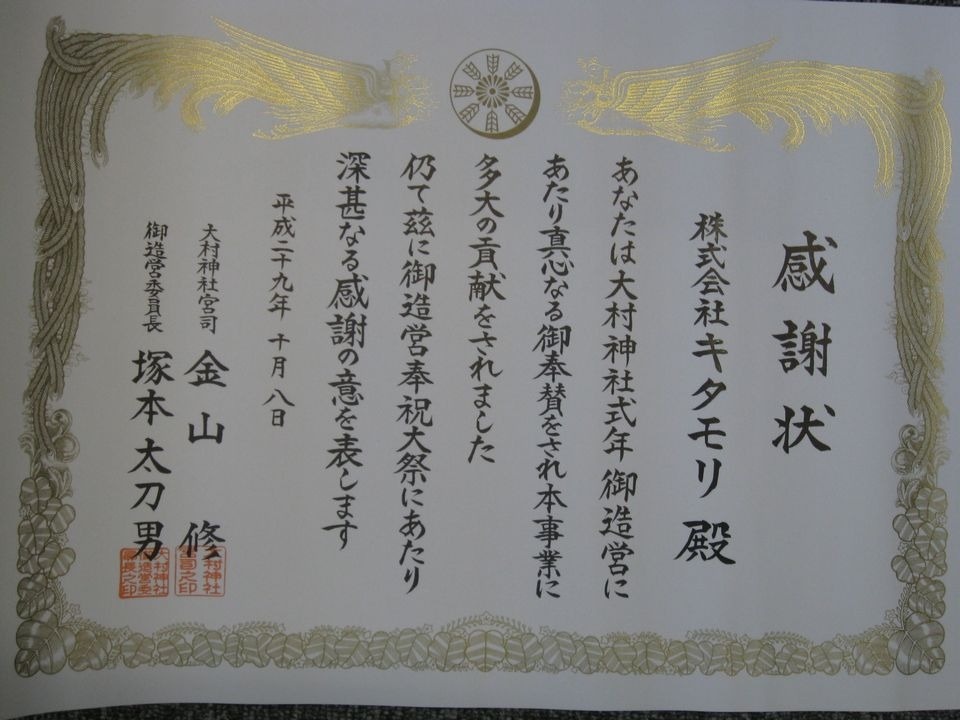 感謝状
株式会社キタモリ殿
あなたは大村神社式年御造営に
あたり真心なる御奉賛をされ本事業に
多大の貢献をされました
仍て茲に御造営奉祝大祭にあたり
深甚なる感謝の意を表します
平成二十九年 十月 八日
大村神社宮司 金山 修
御造営委員長 塚本太刀男